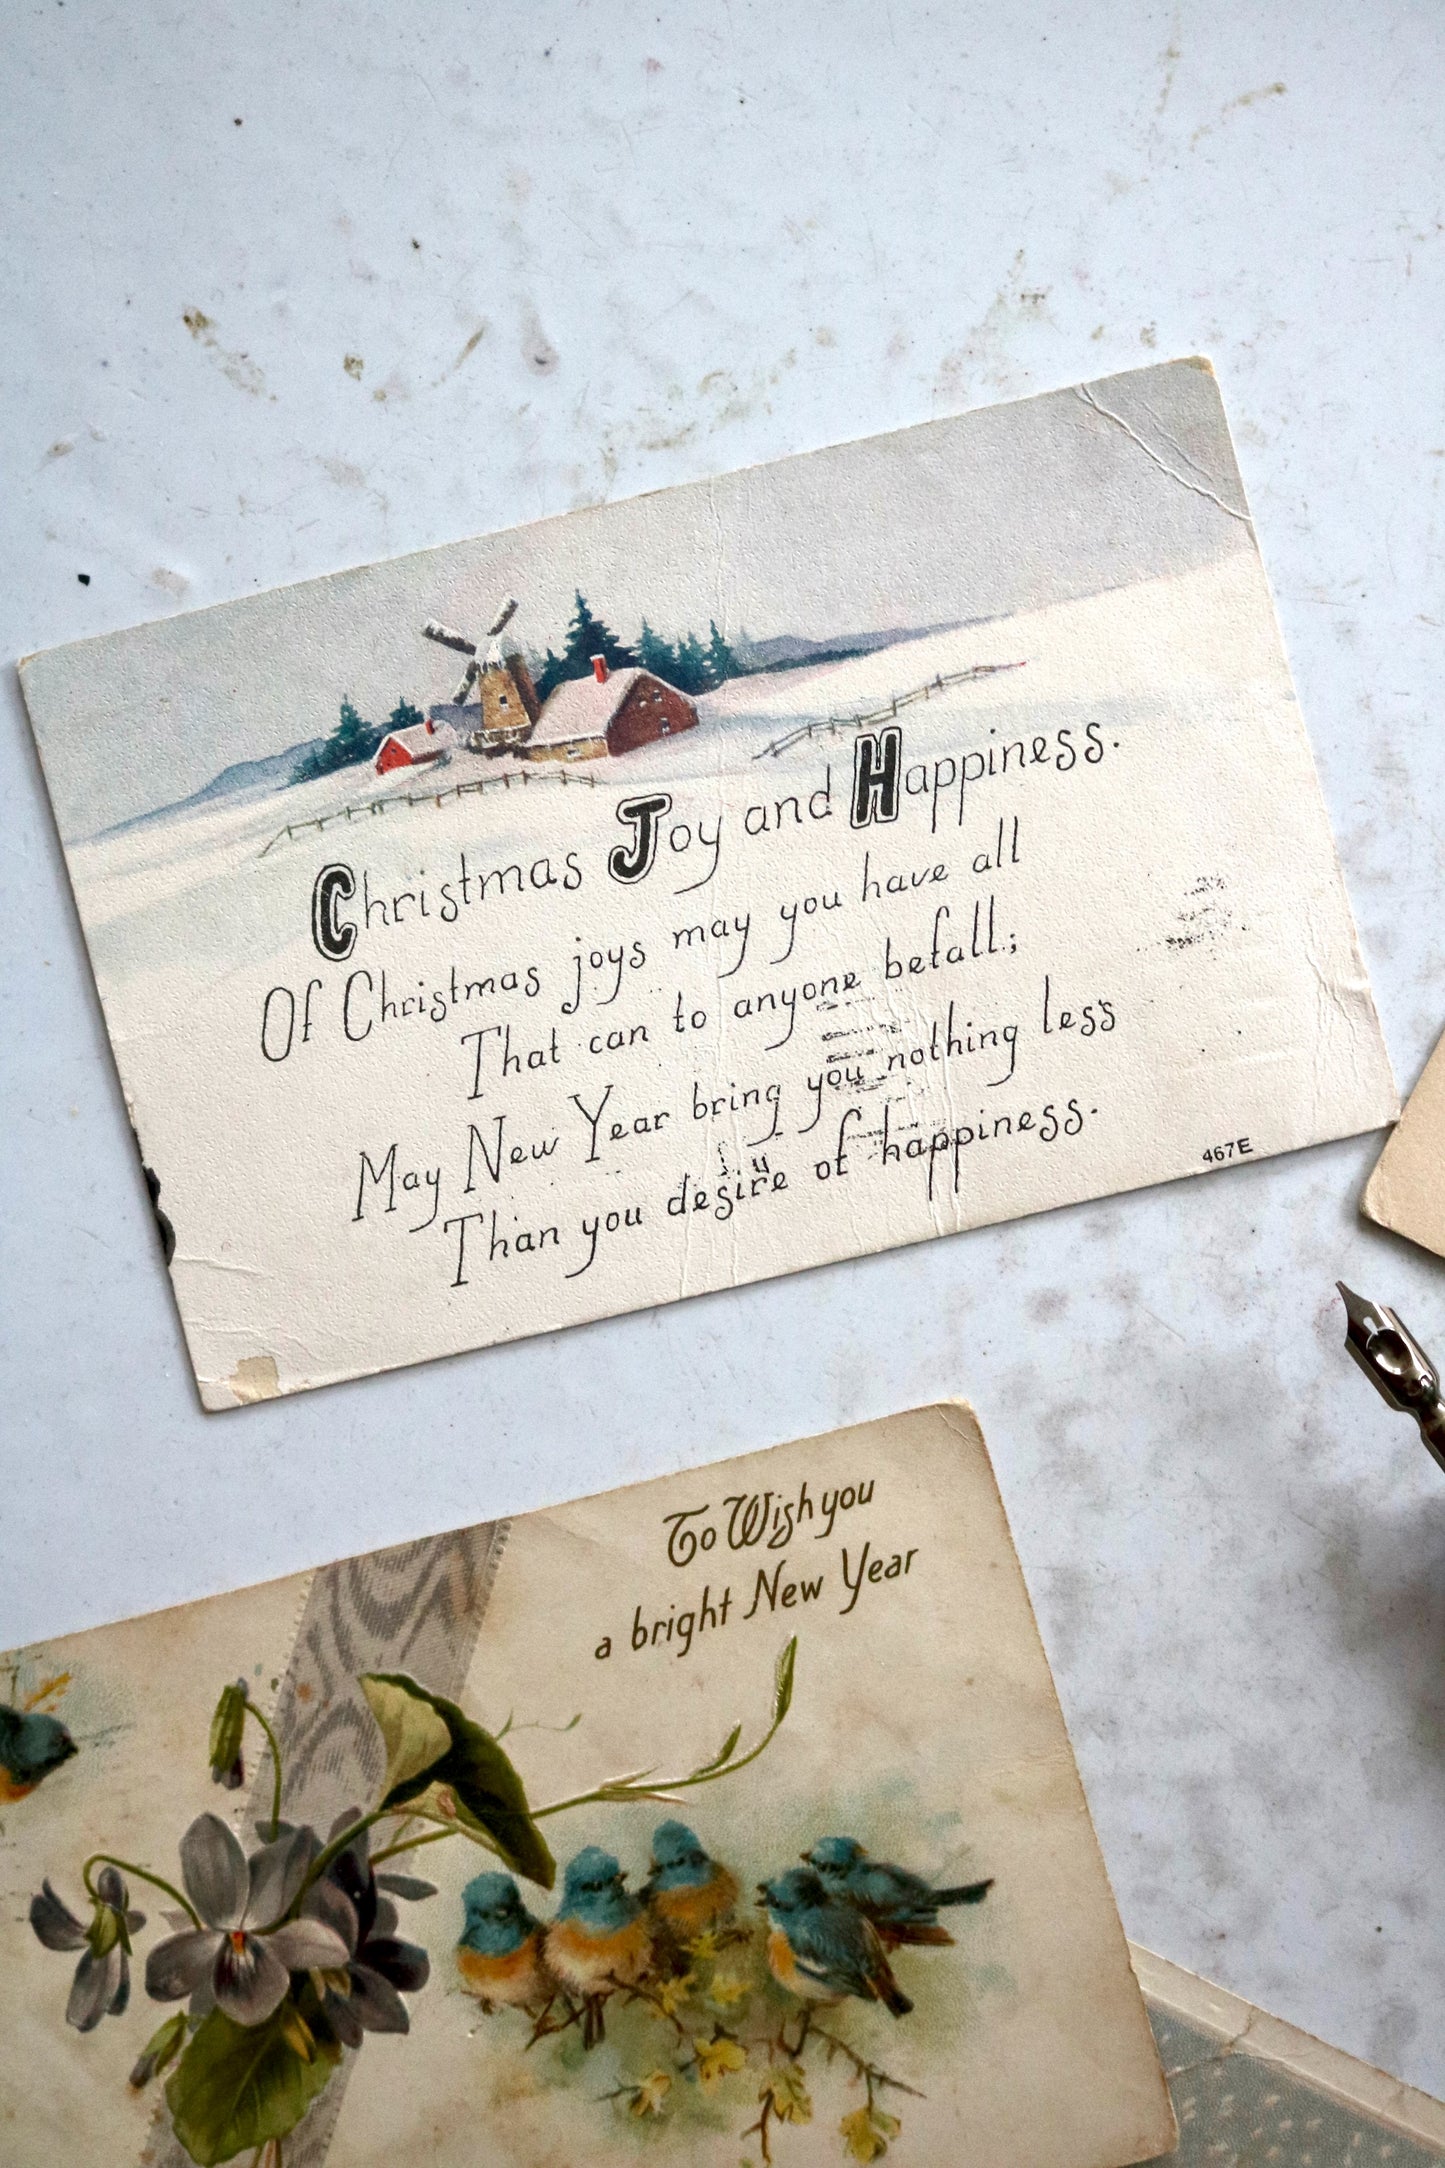 Christmas Joy and Happiness.
Of Christmas joys may you have all
That can to anyone befall;
May New Year bring you nothing less
Than you desire of happiness.
467E
To Wish you
a bright New Year